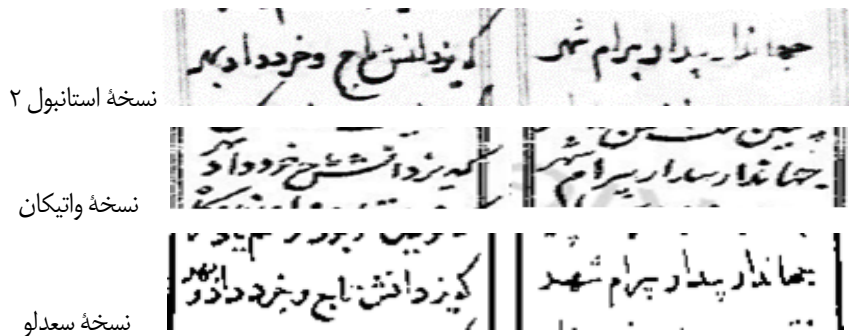 جهاندار بیدار پدرام شهر که یزدانش تاج و خرد داد بهر
نسخهٔ استانبول ۲
جهاندار بیدار پدرام شهر که یزدانش تاج خرد داد بهر
نسخهٔ واتیکان
جهاندار بیدار پدرام شهر که یزدانش تاج و خرد داد و بهر
نسخهٔ سعدلو